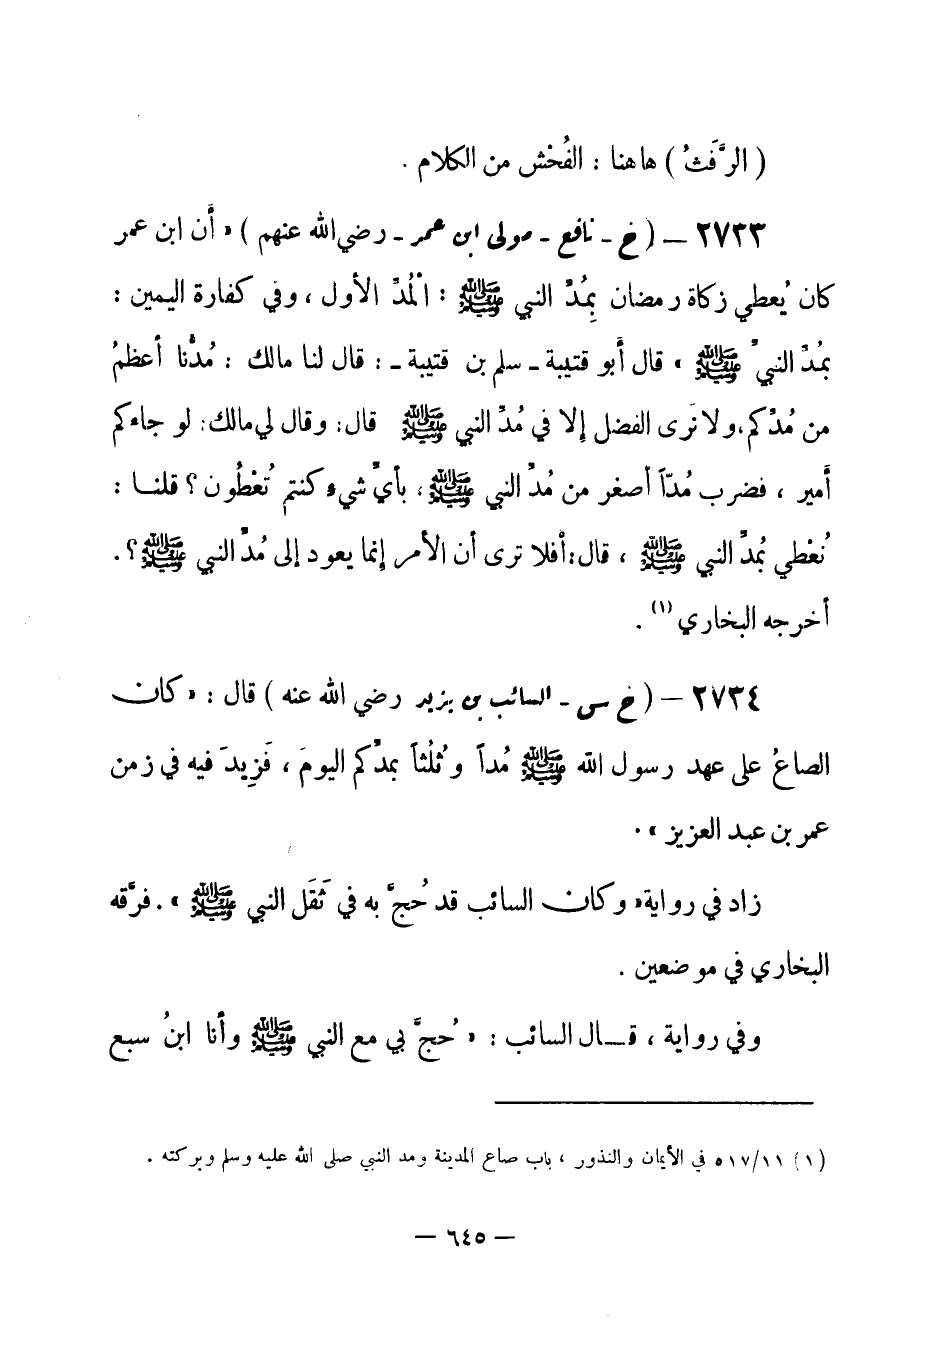 ( الرَّفَثُ ) هاهنا : الفُحْش من الكلام .
٢٧٣٣ – ( خ - نافع - مولى ابن عمر - رضي الله عنهم ) « أن ابن عمر
كان يُعطي زكاة رمضان بِمُدِّ النبي ﷺ : الْمُدِّ الأول ، وفي كفارة اليمين :
بمُدِّ النبيِّ ﷺ » قال أبو قتيبة - سلم بن قتيبة - : قال لنا مالك : مُدُّنا أعظمُ
من مُدِّكم، ولا نَرى الفضل إلا في مُدِّ النبي ﷺ قال: وقال لي مالك: لو جاءكم
أمير ، فضرب مُدّاً أصغر من مُدِّ النبي ﷺ ، بأيِّ شيء كنتم تُعْطُون ؟ قلنا :
نُعْطي بمُدِّ النبي ﷺ ، قال: أفلا ترى أن الأمر إنما يعود إلى مُدِّ النبي ﷺ ؟ .
أخرجه البخاري (١) .
٢٧٣٤ – ( خ س - السائب بن يزيد رضي الله عنه ) قال : « كان
الصاعُ على عهد رسول الله ﷺ مُداً وثُلُثاً بمدِّكم اليومَ ، فَزِيدَ فيه في زمن
عمر بن عبد العزيز » .
زاد في رواية « وكان السائب قد حُجَّ به في ثَقَل النبي ﷺ » . فرَّقه
البخاري في موضعين .
وفي رواية ، قـال السائب : « حُجَّ بي مع النبي ﷺ وأنا ابنُ سبع
(١) ٥١٧/١١ في الأيمان والنذور ، باب صاع المدينة ومد النبي صلى الله عليه وسلم وبركته .
– ٦٤٥ –